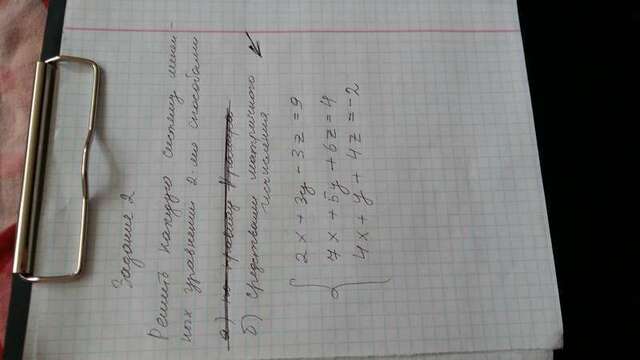 Задание 2
Решить каждую систему линей-
ных уравнений 2-мя способами
а) по правилу Крамера
б) средствами матричного
исчисления
2x + 3y - 3z = 9
7x + 5y + 6z = 4
4x + y + 4z = -2